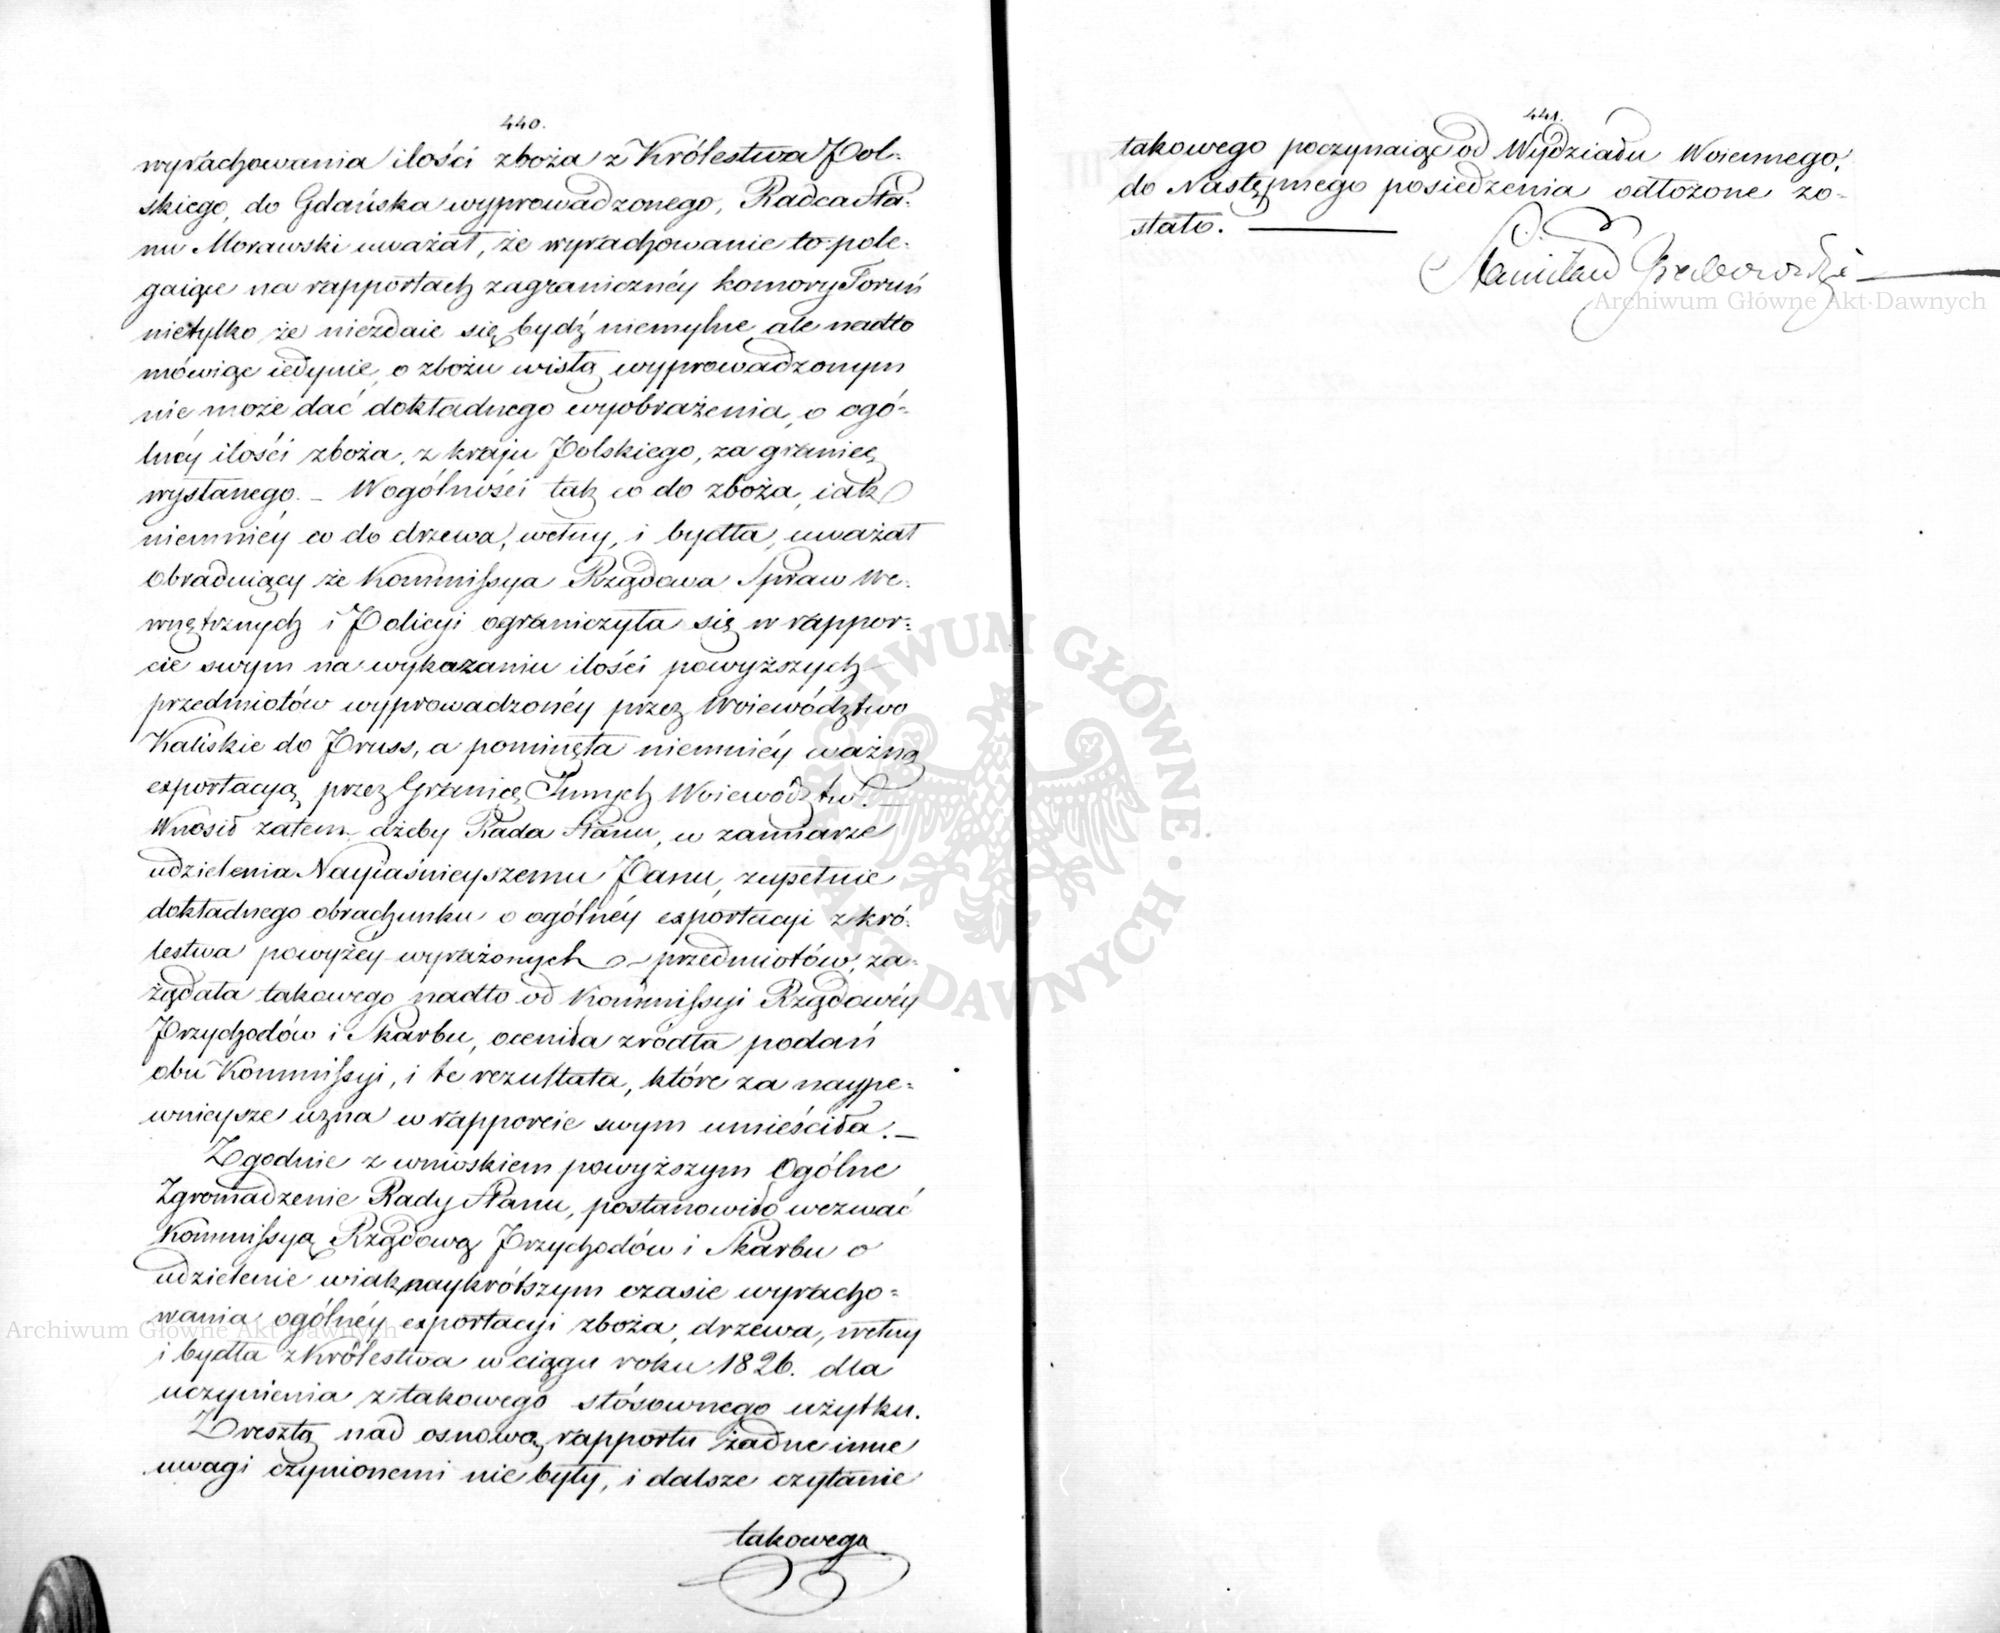 440.
wyrachowania ilości zboża z Królestwa Pol-
skiego, do Gdańska wyprowadzonego, Radca Sta-
nu Morawski uważał, że wyrachowanie to pole-
gaiące na rapportach zagranicznéy komory Toruń
nietylko że niezdaie się bydź niemylne, ale nadto
mówiąc iedynie, o zbożu wisłą wyprowadzonym
nie może dać dokładnego wyobrażenia, o ogó-
lnéy ilości zboża, z kraju Polskiego, za granicę
wysłanego. – Wogólności tak co do zboża, iak
niemniéy co do drzewa, wełny, i bydła, uważał
Obraduiący że Kommissya Rządowa Spraw We-
wnętrznych i Policyi ograniczyła się w rappor-
cie swym na wykazaniu ilości powyższych
przedmiotów wyprowadzonéy przez Woiewództwo
Kaliskie do Pruss, a pominęła niemniéy ważną
exportacyą przez Granice Innych Woiewództw. –
Wnosił zatem ażeby Rada Stanu, w zamiarze
udzielenia Nayiaśnieyszemu Panu, zupełnie
dokładnego obrachunku o ogólnéy exportacyi z kró-
lestwa powyżéy wyrażonych przedmiotów, za-
żądała takowego nadto od Kommissyi Rządowéy
Przychodów i Skarbu, oceniła zródła podań
obu Kommissyi, i te rezultata, które za naype-
wnieysze uzna w rapporcie swym umieściła. –
Zgodnie z wnioskiem powyższym Ogólne
Zgromadzenie Rady Stanu, postanowiło wezwać
Kommissyą Rządową Przychodów i Skarbu o
udzielenie wiak naykrótszym czasie wyracho-
wania ogólnéy exportacyi zboża, drzewa, wełny
i bydła z Królestwa w ciągu roku 1826. dla
uczynienia z takowego stósownego użytku.
Zresztą nad osnową rapportu żadne inne
uwagi czynionemi nie były, i dalsze czytanie
takowego
441.
takowego poczynaiąc od Wydziału Woiennego,
do Następnego posiedzenia odłożone zo-
stało. ———
Stanisław Grabowski
Archiwum Główne Akt Dawnych
Archiwum Główne Akt Dawnych
ARCHIWUM GŁÓWNE · AKT DAWNYCH ·